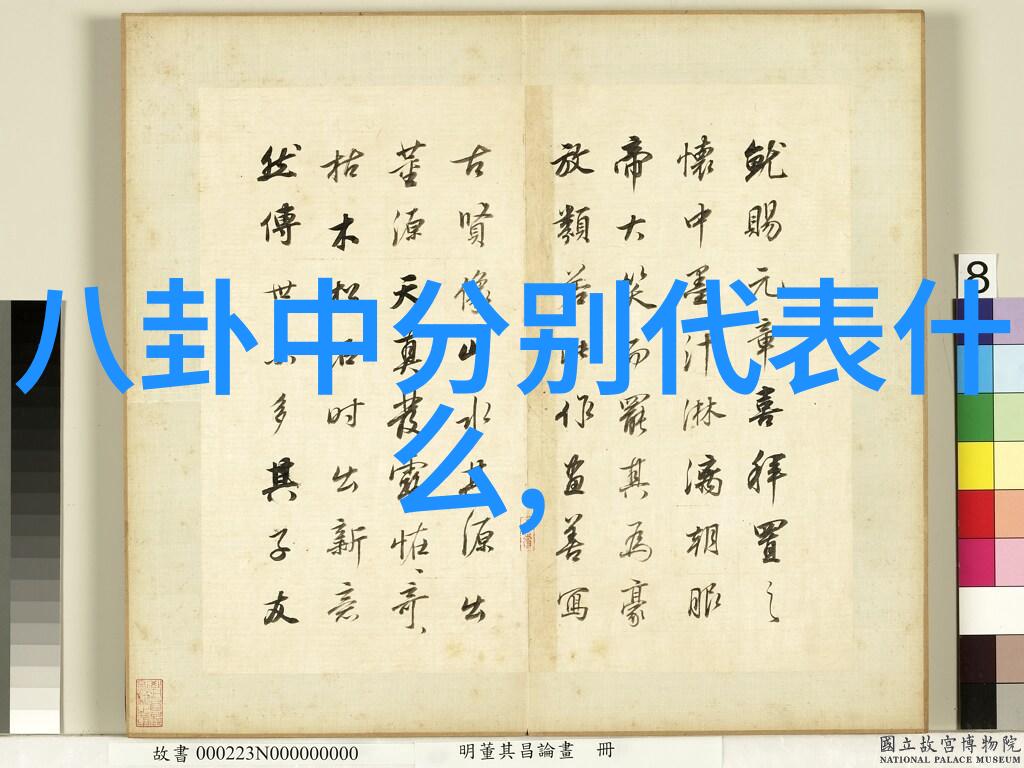 八卦中分别代表什
么,
鱿賜元章喜拜置之
懷中墨汁淋漓朝服
帝大笑而罷其為豪
放類若此作畫善寫
古賢像山水其源出
董源天真發露怪奇
枯木松石時出新意
然傳世不多其子友
8
故書 000223N000000000
明董其昌論畫 冊
國立故宮博物院
NATIONAL PALACE MUSEUM